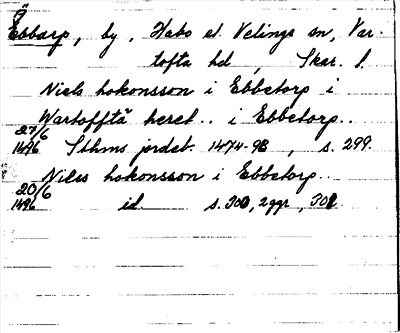 Ebbarp, by, Habo el. Velinge sn, Var-
tofta hd, Skar. l.
Niels hokonsson i Ebbetorp i
Wartofftā heret.. i Ebbetorp..
27/6
1496 Sthms jordeb. 1474-98, s. 299.
Niels hokonsson i Ebbetorp..
20/6
1496 id. s. 300, 2 ggr, 301